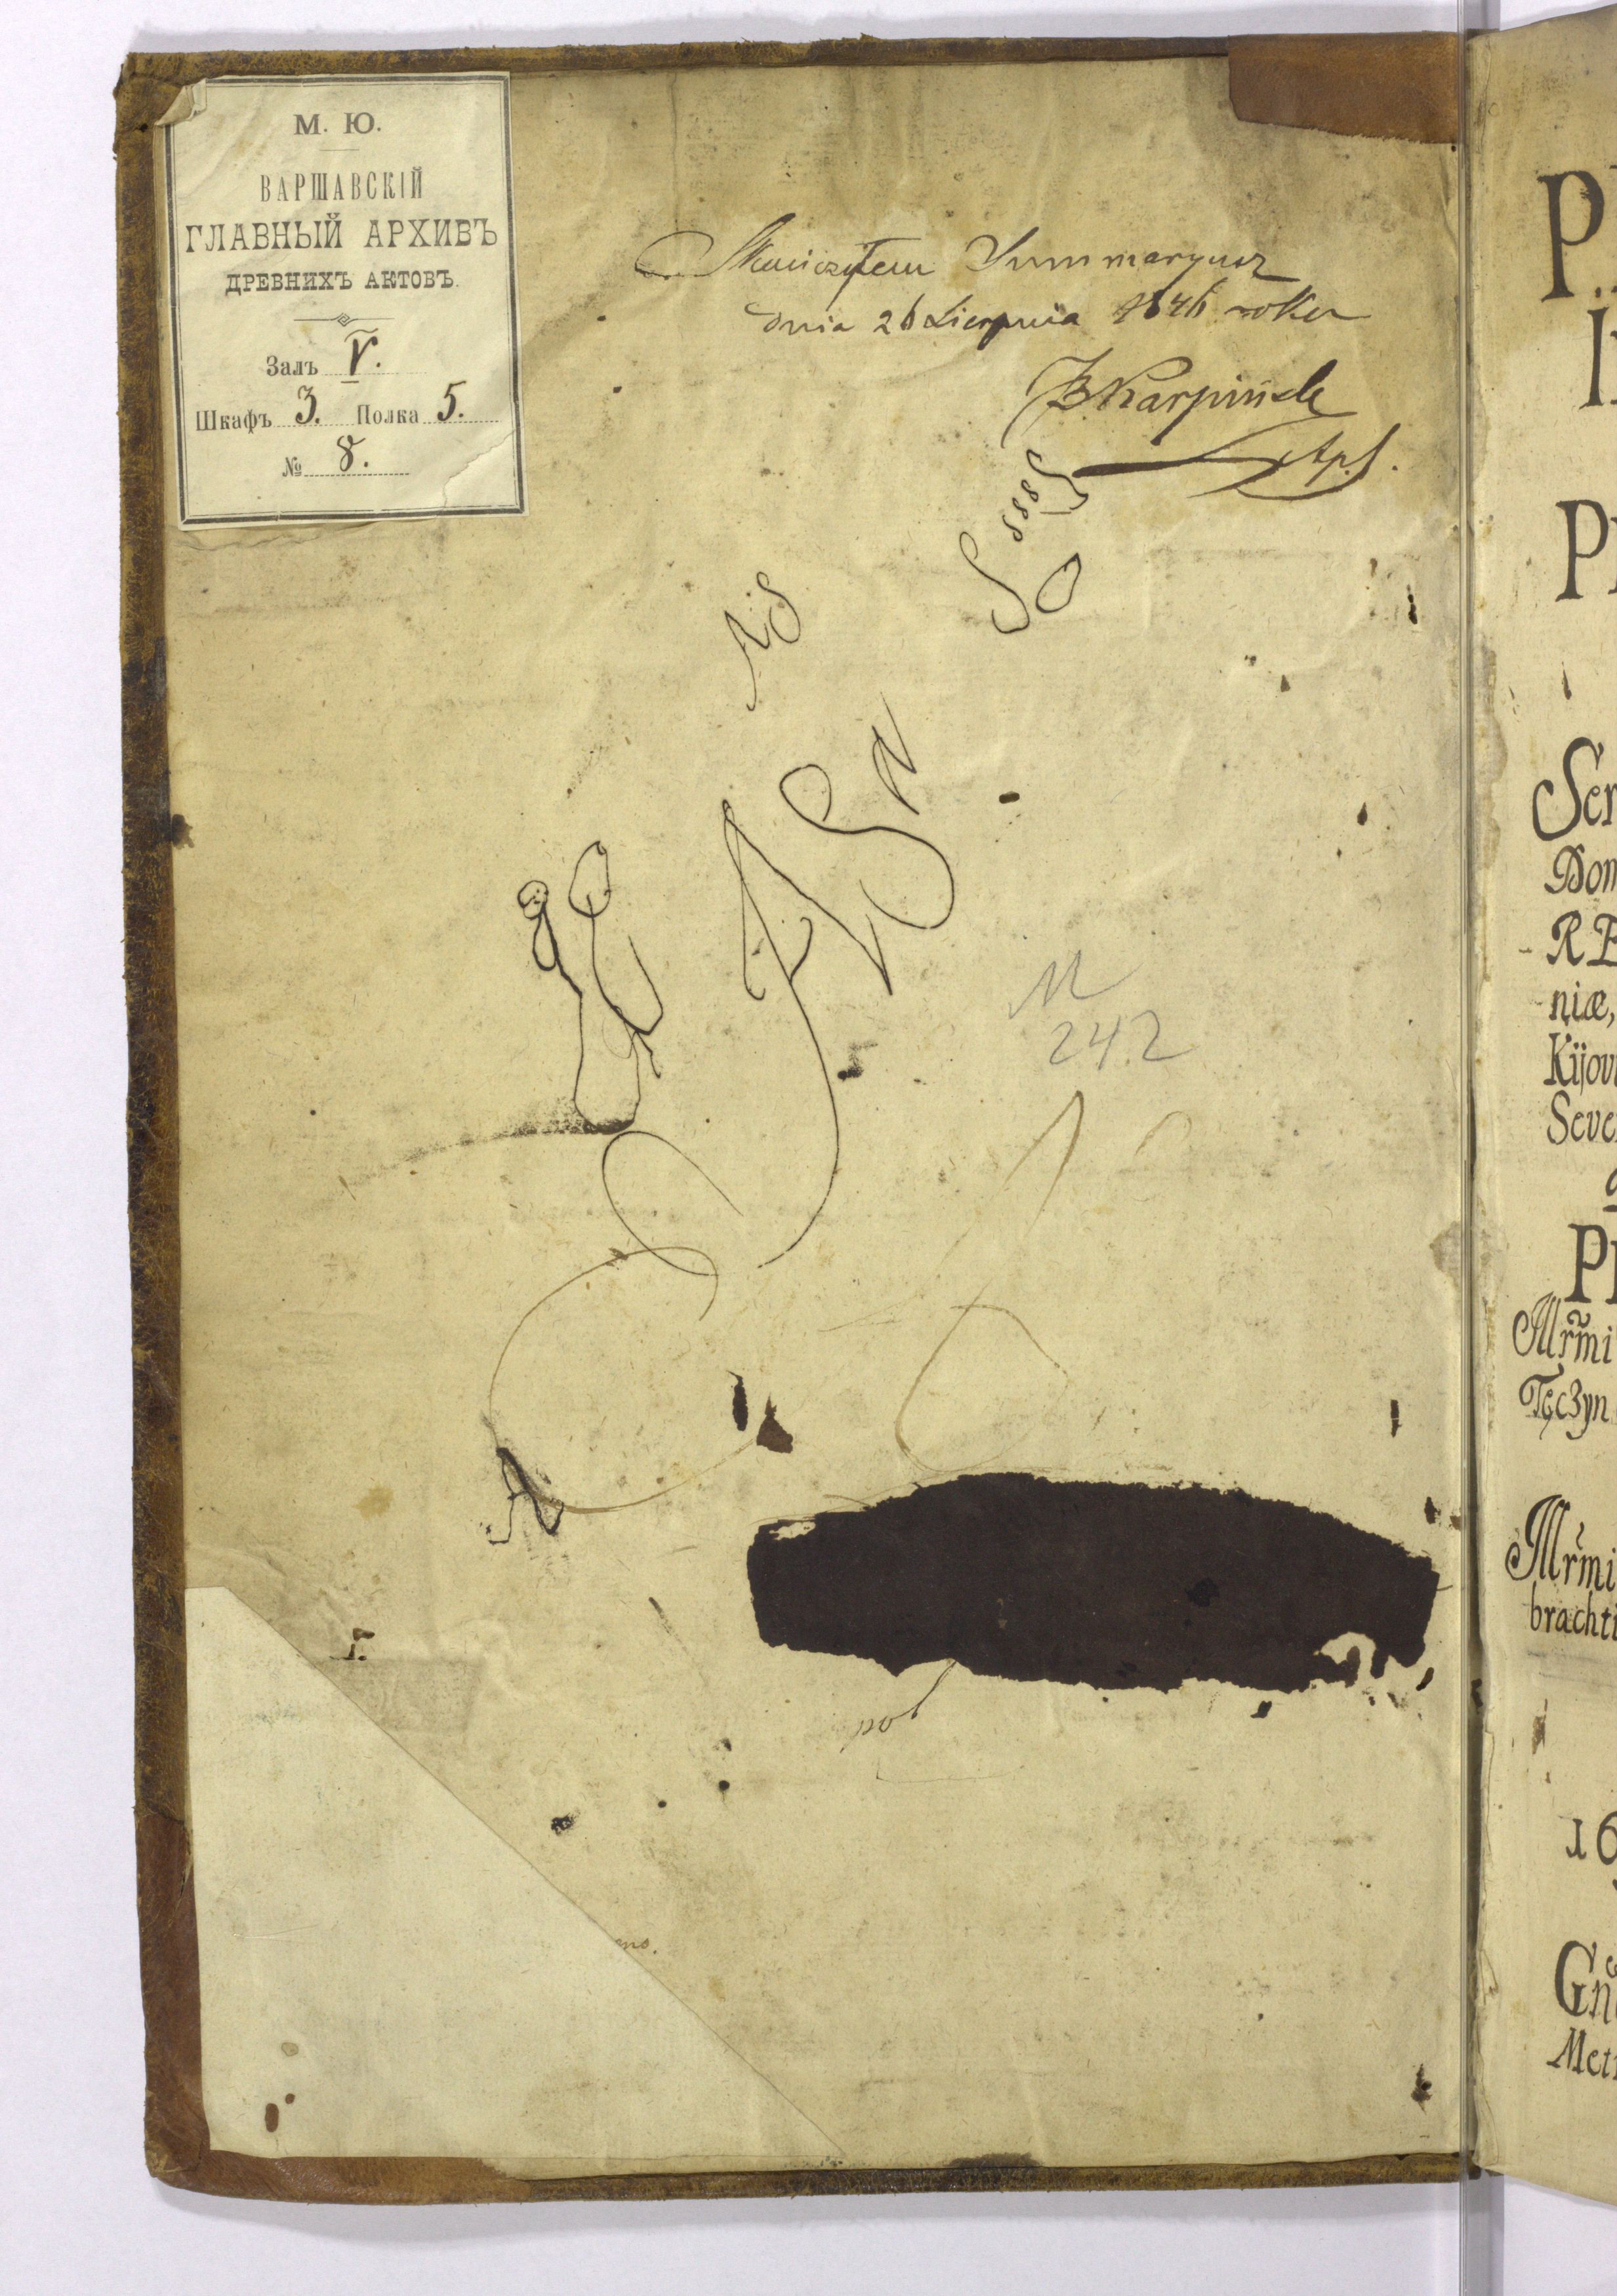 М. Ю.
ВАРШАВСКІЙ
ГЛАВНЫЙ АРХИВЪ
ДРЕВНИХЪ АКТОВЪ.
Залъ V.
Шкафъ 3. Полка 5.
№ 8.
Skończyłem Summaryusz
dnia 26 Sierpnia 1846 roku
Karpiński
Ap.
M
242
I.
pol
eno.
P
P
Ser
Dom
RE
niæ,
Kijovi
Seve
P
Mr̃mi
TęcZyn
Mr̃mi
brachti
16
Gn
Met